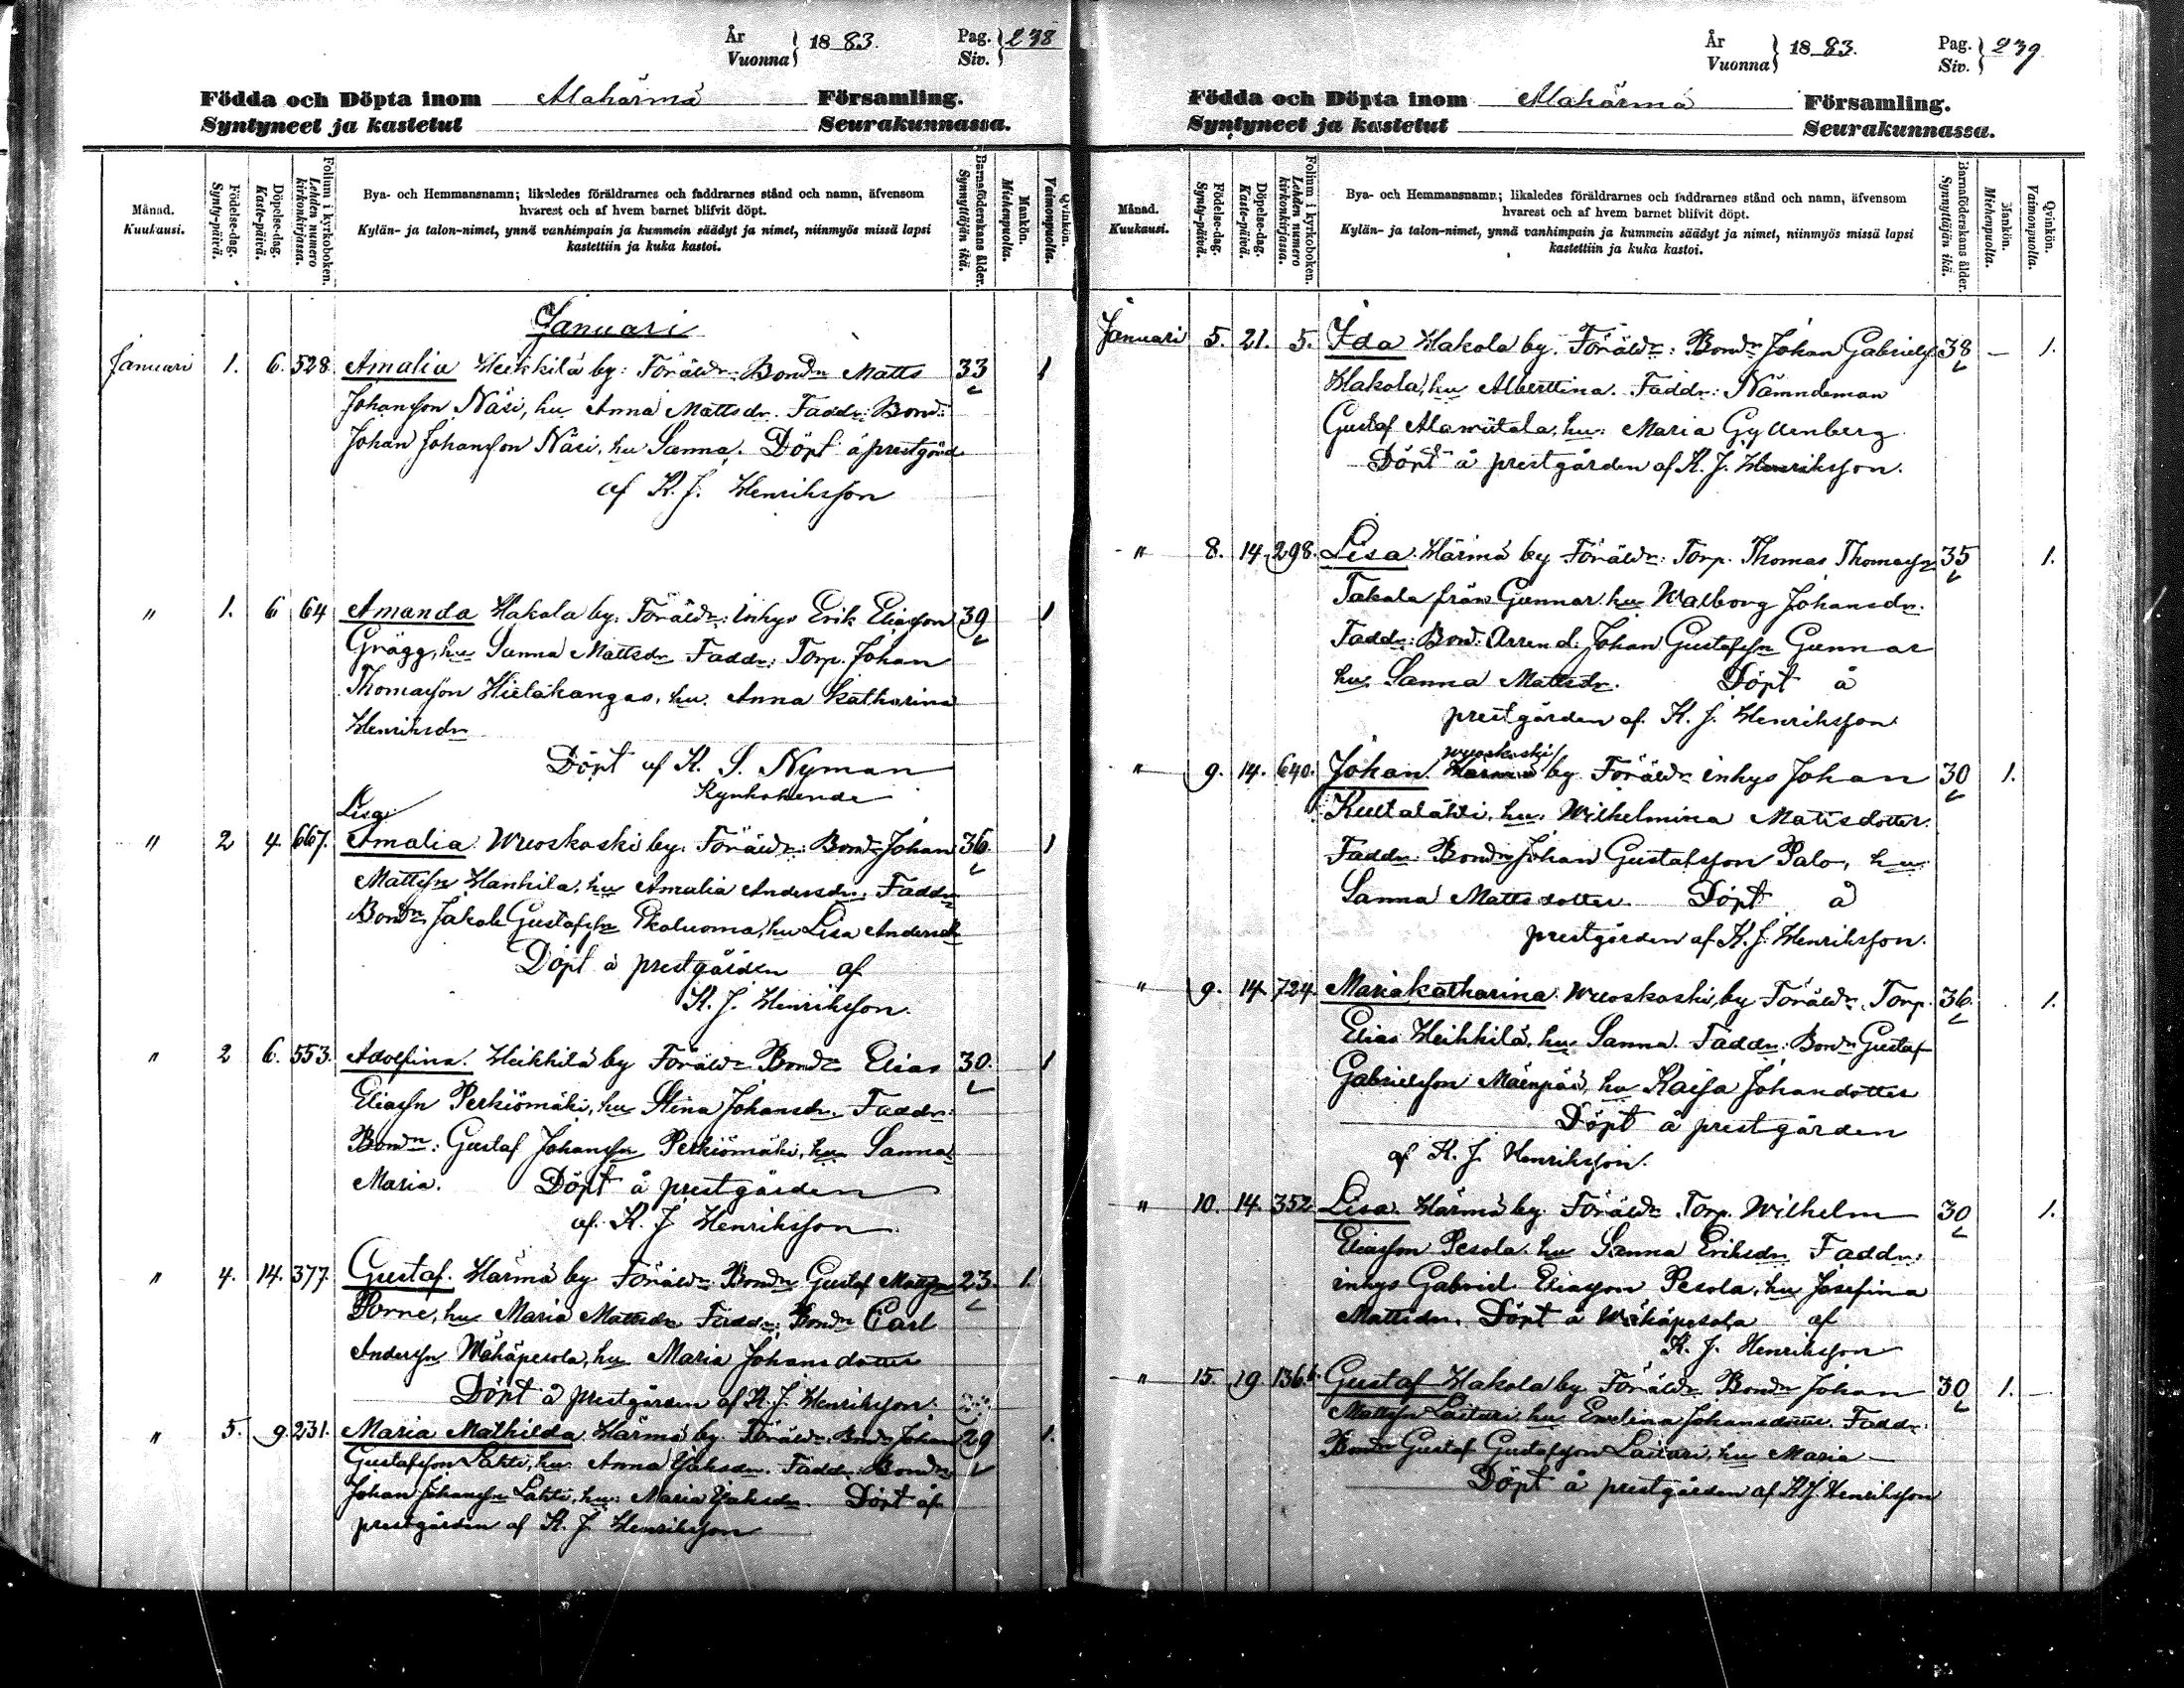 År
Vuonna } 1883.
Pag.
Siv. } 238
Födda och Döpta inom Alahärmä Församling.
Syntyneet ja kastetut Seurakunnassa.
Månad.
Kuukausi.
Födelse-dag.
Synty-päivä.
Döpelse-dag.
Kaste-päivä.
Folium i kyrkoboken.
Lehden numero
kirkonkirjassa.
Bya- och Hemmansnamn; likaledes föräldrarnes och faddrarnes stånd och namn, äfvensom
hvarest och af hvem barnet blifvit döpt.
Kylän- ja talon-nimet, ynnä vanhimpain ja kummein säädyt ja nimet, niinmyös missä lapsi
kastettiin ja kuka kastoi.
Barnaföderskans ålder.
Synnyttäjän ikä.
Mankön.
Miehenpuolta.
Qvinkön.
Vaimonpuolta.
Januari
Januari 1. 6. 528. Amalia Heikkilä by: Föräldr: Bondn Matts 33 1
Johansson Näsi, hu Anna Mattsdr. Faddr: Bond:
Johan Johansson Näsi, hu Sanna. Döpt å prestgård
af K. J. Henriksson
" 1. 6 64 Amanda Hakola by: Föräldr: inhys Erik Eliasson 39 1
Grägg, hu Sanna Mattsdr Faddr: Torp. Johan
Thomasson Hietakangas, hu. Anna Katharina
Henriksdr
Döpt af K. S. Nyman
Kyrkoherde
Lisa
" 2 4. 667. Amalia Wuoskoski by. Föräldr: Bondn Johan 36 1
Mattsn Hanhila, hu Amalia Andersdr. Faddr
Bondn Jakob Gustafsn Ekoluoma, hu Lisa Andersdr
Döpt å prestgården af
K. J. Henriksson.
" 2 6. 553. Adolfina. Heikkilä by Föräldr Bondn Elias 30. 1
Eliassn Perkiömäki, hu Stina Johansdr. Faddr:
Bondn: Gustaf Johanssn Perkiömäki, hu Sanna
Maria. Döpt å prestgården
af K. J. Henriksson
" 4. 14. 377. Gustaf. Härmä by Föräldr Bondn Gustaf Mattsn 23. 1.
Porre, hu Maria Mattsdr Faddr: Bondn Carl
Anderssn Wähäpesola, hu Maria Johansdotter
Döpt å prestgården af K. J. Henriksson.
" 5. 9. 231. Maria Mathilda Härmä by. Föräldr. Bondn Johan 29 1.
Gustafsson Lahti, hu Anna Jaksdr. Faddr: Bondn
Johan Johanssn Lahti, hu: Maria Jaksdr. Döpt å
prestgården af K. J. Henriksson
År
Vuonna } 1883.
Pag.
Siv. } 239
Födda och Döpta inom Alahärmä Församling.
Syntyneet ja kastetut Seurakunnassa.
Månad.
Kuukausi.
Födelse-dag.
Synty-päivä.
Döpelse-dag.
Kaste-päivä.
Folium i kyrkoboken.
Lehden numero
kirkonkirjassa.
Bya- och Hemmansnamn; likaledes föräldrarnes och faddrarnes stånd och namn, äfvensom
hvarest och af hvem barnet blifvit döpt.
Kylän- ja talon-nimet, ynnä vanhimpain ja kummein säädyt ja nimet, niinmyös missä lapsi
kastettiin ja kuka kastoi.
Barnaföderskans ålder.
Synnyttäjän ikä.
Mankön.
Miehenpuolta.
Qvinkön.
Vaimonpuolta.
Januari 5. 21. 5. Ida Hakola by. Föräldr: Bondn Johan Gabrielss 38 — 1.
Hakola, hu Alberttina. Faddr: Nämndeman
Gustaf Alawiitala, hu: Maria Gyllenberg
Döpt å prestgården af K. J. Henriksson.
" 8. 14. 298. Lisa. Härmä by Föräldr: Torp. Thomas Thomassn 35 1.
Takala från Gunnar hu Walborg Johansdr.
Faddr: Bond. Arrend: Johan Gustafssn Gunnar
hu Sanna Mattsdr. Döpt å
prestgården af. K. J. Henriksson
Wuoskoski
" 9. 14. 640. Johan. Härmä by Föräldr inhys Johan 30 1.
Kultalahti, hu. Wilhelmina Mattsdotter.
Faddr Bondn Johan Gustafsson Palo, hu
Sanna Mattsdotter. Döpt å
prestgården af K. J. Henriksson.
" 9. 14. 724 Maria Katharina. Wuoskoski, by Föräldr. Torp. 36. 1.
Elias Heikkilä, hu Sanna. Faddr: Bondn Gustaf
Gabrielsson Mäenpää, hu Kaisa Johandotter
Döpt å prestgården
af K. J. Henriksson.
" 10. 14. 352 Lisa. Härmä by. Föräldr Torp. Wilhelm 30 1.
Eliasson Pesola. hu Sanna Eriksdr. Faddr:
inhys Gabriel Eliasson Pesola, hu Josefina
Mattsdr. Döpt å Wähäpesola af
K. J. Henriksson
" 15. 19. 136 Gustaf Hakola by Föräldr Bondn Johan 30 1. —
Mattsn Laitari hu Ewelina Johansdotter. Faddr:
Bondn Gustaf Gustafsson Laitari, hu Maria —
Döpt å prestgården af K. J. Henriksson